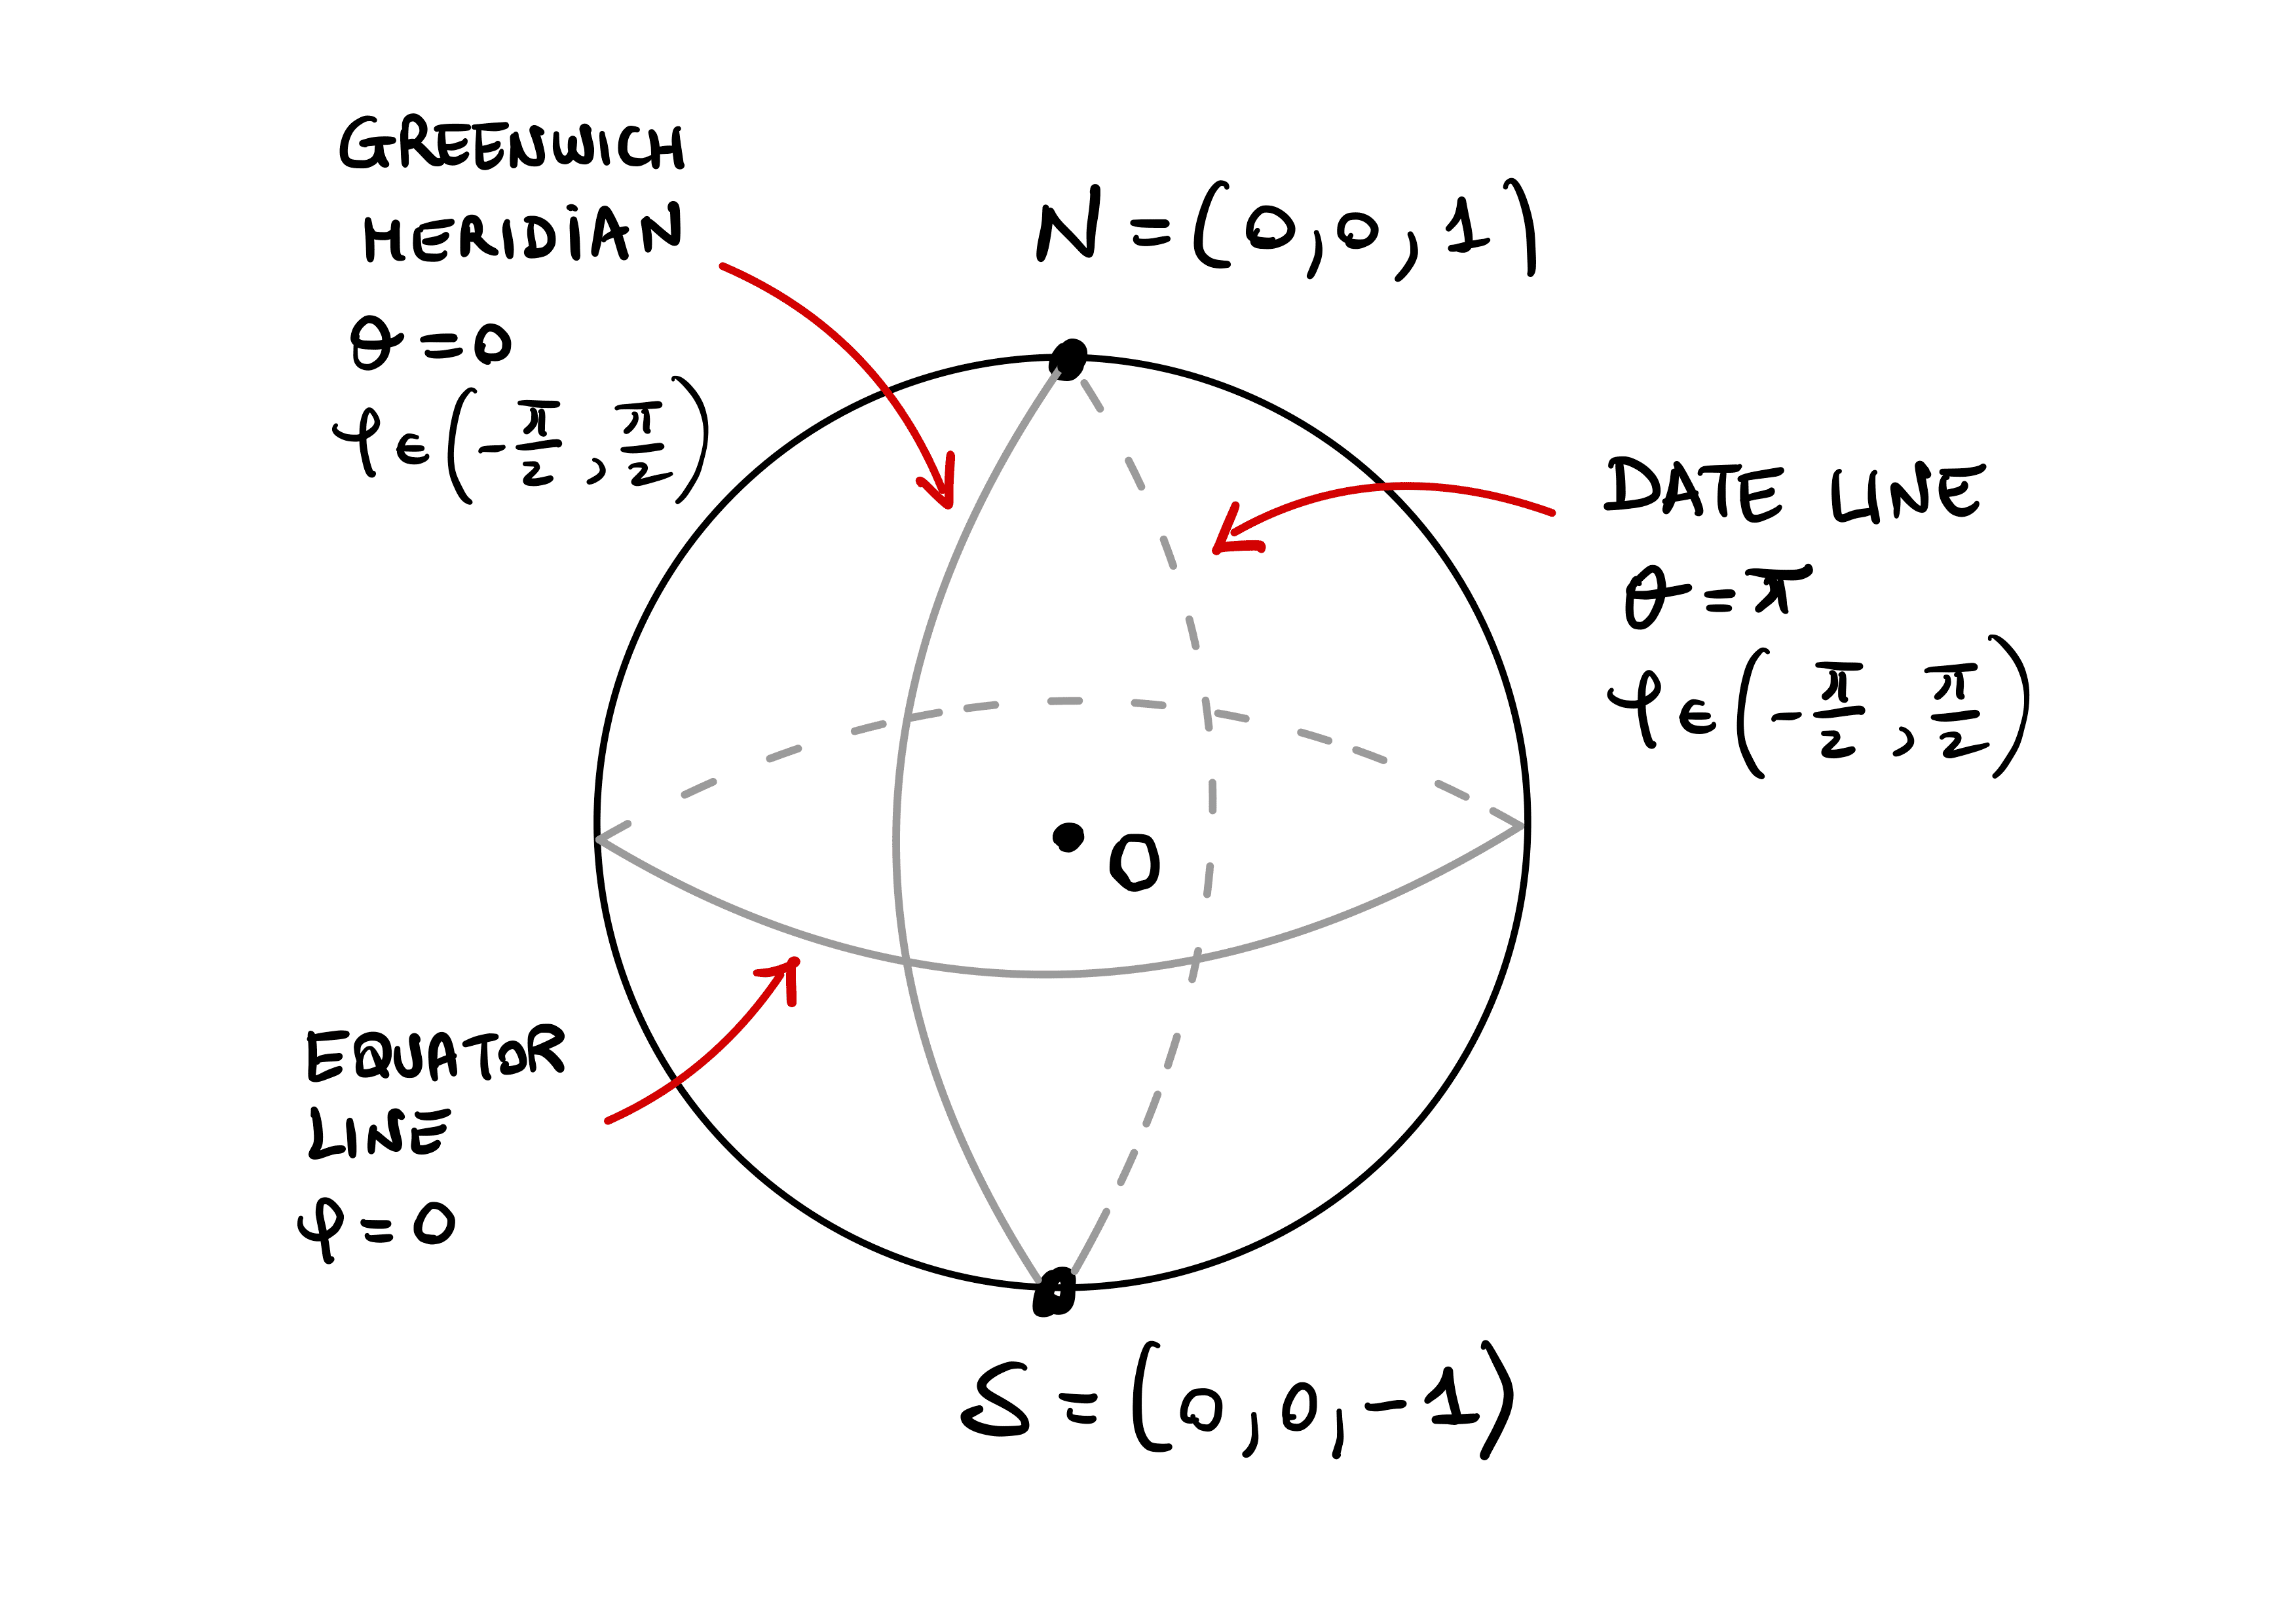 GREENWICH
MERIDIAN
θ = 0
φ ∈ (-π/2, π/2)
N = (0, 0, 1)
DATE LINE
θ = π
φ ∈ (-π/2, π/2)
O
EQUATOR
LINE
φ = 0
S = (0, 0, -1)